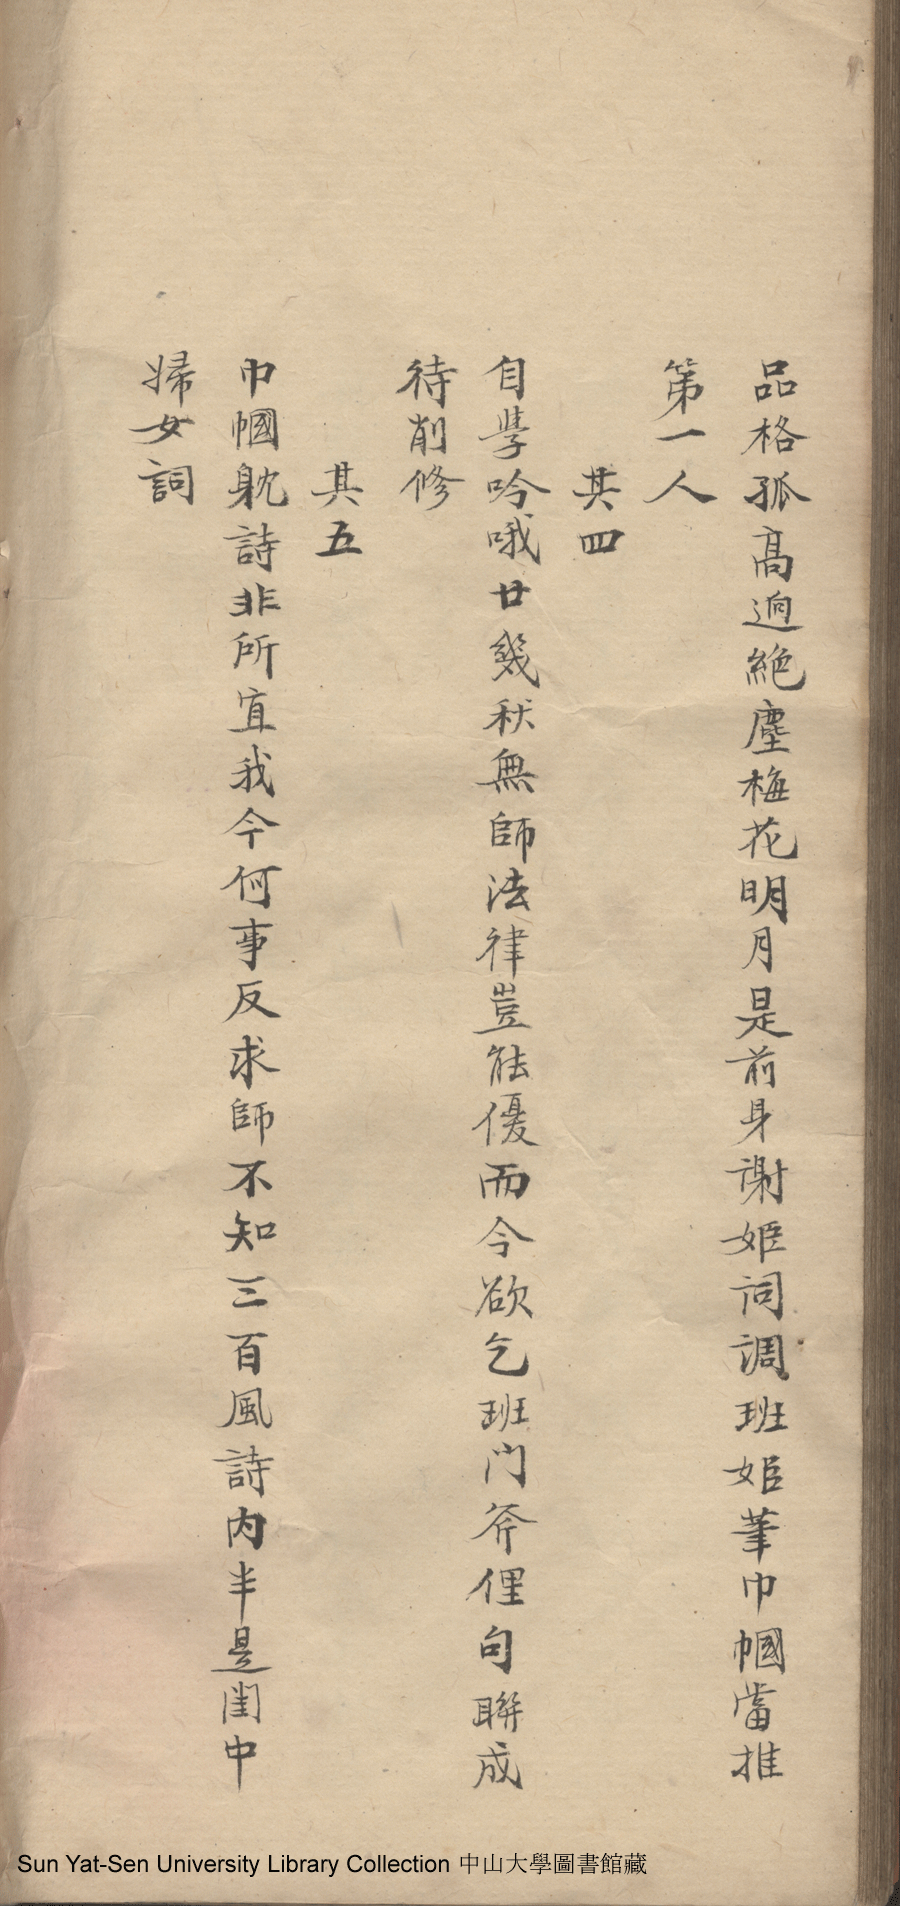 品格孤高迥絶塵梅花明月是前身謝姬詞調班姬筆巾幗當推
第一人
其四
自學吟哦廿幾秋無師法律豈能優而今欲乞班門斧俚句聯成
待削修
其五
巾幗躭詩非所宜我今何事反求師不知三百風詩内半是閨中
婦女詞
Sun Yat-Sen University Library Collection 中山大學圖書館藏